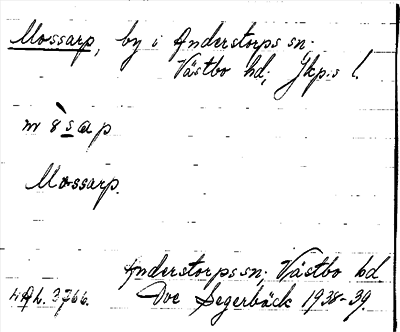 Mossarp, by i Anderstorps sn.
Västbo hd, Jkp:s l.
Mossarp.
Anderstorps sn; Västbo hd
3766. Ove Segerbäck 1938-39.